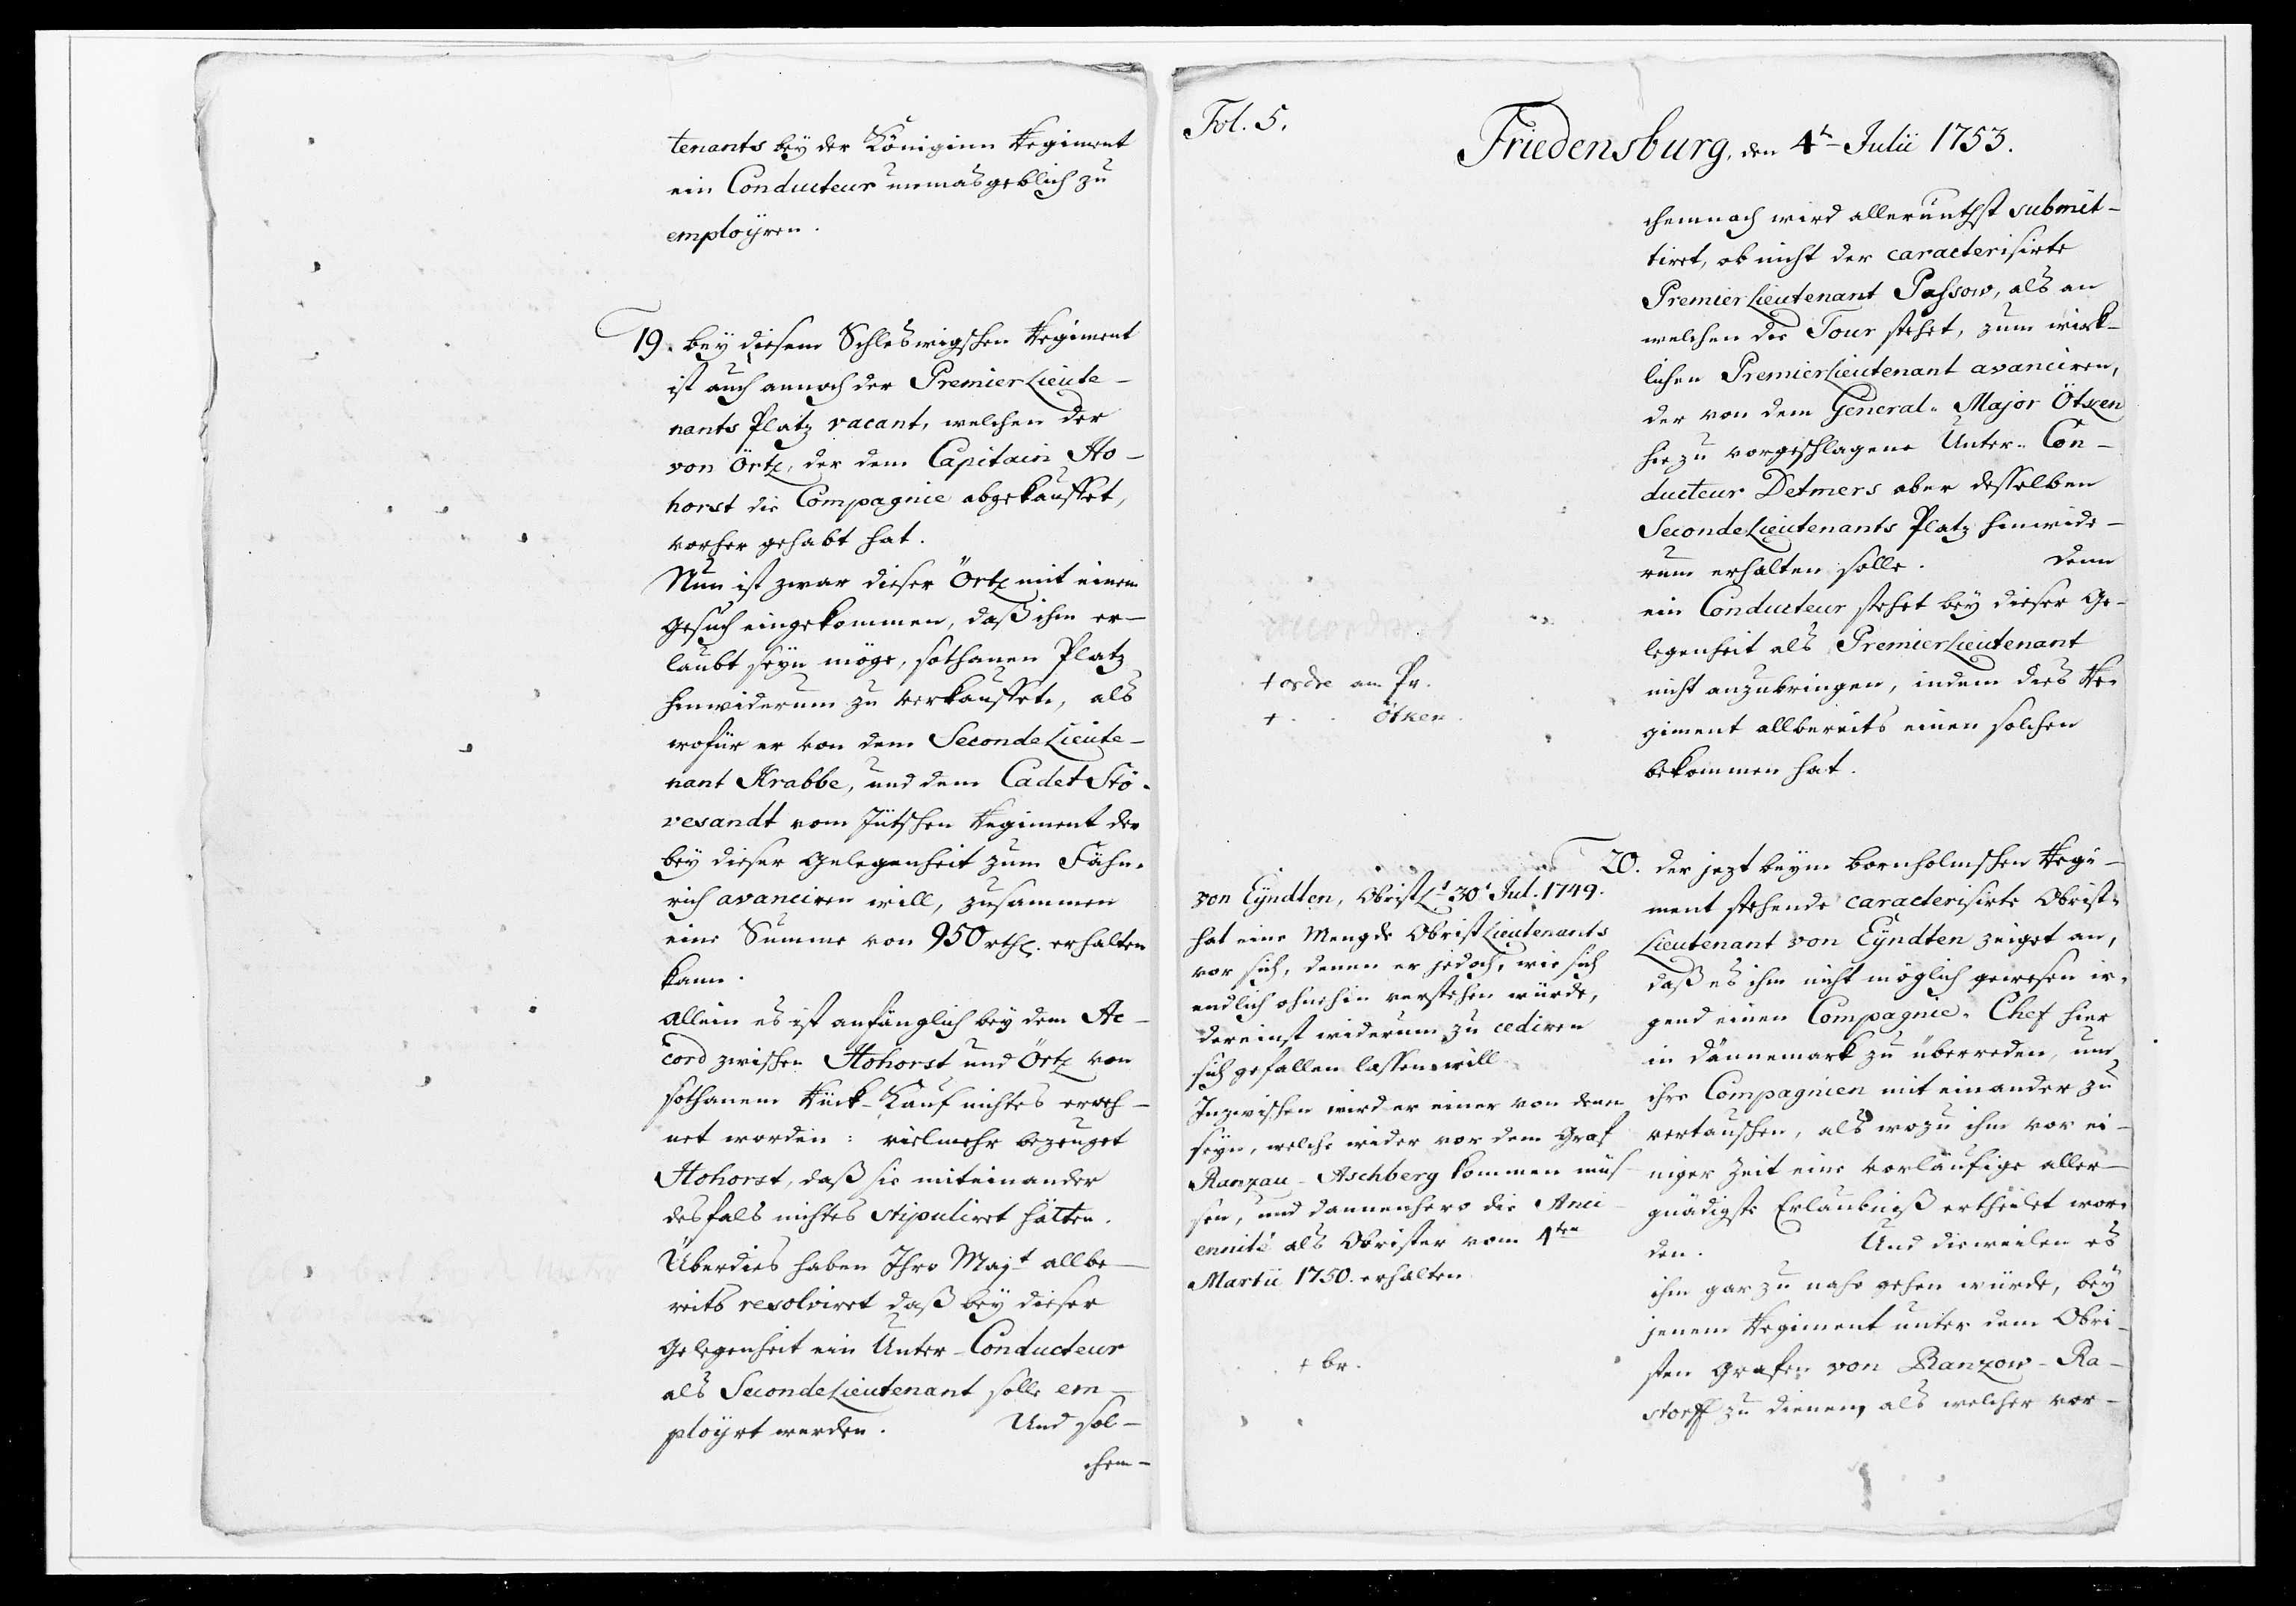 tenants bey der Königinn Regiment
ein Conducteur unmasgeblich zu
employren.
19. bey diesem Schleswigschen Regiment
ist auch annoch der PremierLieute-
nants Platz vacant, welchen der
von Örtz, der dem Capitain Ho-
horst die Compagnie abgekauffet,
vorher gehabt hat.
Nun ist zwar dieser Örtz mit einem
Gesuch eingekommen, daß ihm er-
laubt seyn möge, sothanen Platz
hinwiderum zu verkauffen, als
wofür er von dem SecondeLieute-
nant Krabbe, und dem Cadet Stö-
vesandt vom Jütschen Regiment der
bey dieser Gelegenheit zum Fähn-
rich avanciren will, zusammen
eine Summe von 950 rthl. erhalten
kann.
Allein es ist anfänglich bey dem Ac-
cord zwischen Hohorst und Örtz von
sothanem Rück-Kauf nichtes erweh-
net worden: vielmehr bezeuget
Hohorst, daß sie miteinander
desfals nichtes stipuliret hätten.
Überdies haben Ihro Majt allbe-
reits resolviret daß bey dieser
Gelegenheit ein Unter-Conducteur
als SecondeLieutenant solle em-
ployrt werden. Und sol-
chem-
Fol. 5.
Friedensburg, den 4t Julii 1753.
chemnach wird allerunthst submit-
tiret, ob nicht der caracterisirte
PremierLieutenant Passow, als an
welchen die Tour stehet, zum wirk-
lichen PremierLieutenant avanciren,
der von dem General-Major Ötken
hiezu vorgeschlagene Unter-Con-
ducteur Detmers aber desselben
SecondeLieutenants Platz hinwide-
rum erhalten solle. Denn
ein Conducteur stehet bey dieser Ge-
legenheit als PremierLieutenant
nicht anzubringen, indem dies Re-
giment allbereits einen solchen
bekommen hat.
+ ordre am Pr.
+ . . Ötken.
20. der jezt beym Bornholmschen Regi-
ment stehende caracterisirte Obrist-
Lieutenant von Eyndten zeiget an,
daß es ihm nicht möglich gewesen ir-
gend einen Compagnie-Chef hier
in Dännemark zu überreden, um
ihre Compagnien mit einander zu
vertauschen, als wozu ihm vor ei-
niger Zeit eine vorläufige aller-
gnädigste Erlaubniß ertheilet wor-
den. Und dieweilen es
ihm gar zu nahe gehen würde, bey
jenem Regiment unter dem Obri-
sten Grafen von Ranzow-Ra-
storff zu dienen, als welcher vor-
von Eyndten, ObristLt 30t Jul. 1749.
hat eine Mengde ObristLieutenants
vor sich, denen er jedoch, wie sich
endlich ohnehin verstehen würde,
dereinst widerum zu cediren
sich gefallen lassen will
Inzwischen wird er einer von denen
seyn, welche wider vor dem Graf
Ranzau-Aschberg kommen müs-
sen, und dannenhero die Anci-
ennité als Obrister vom 1ten
Martii 1750. erhalten
+ br.